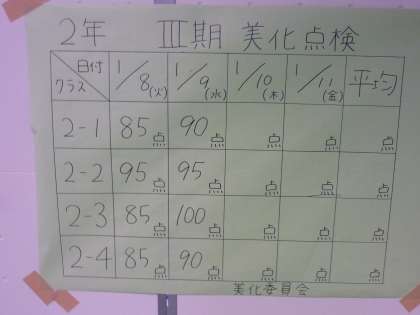 2年 Ⅲ期 美化点検
日付 クラス 1/8(火) 1/9(水) 1/10(木) 1/11(金) 平均
2-1 85点 90点 点 点 点
2-2 95点 95点 点 点 点
2-3 85点 100点 点 点 点
2-4 85点 90点 点 点 点
美化委員会